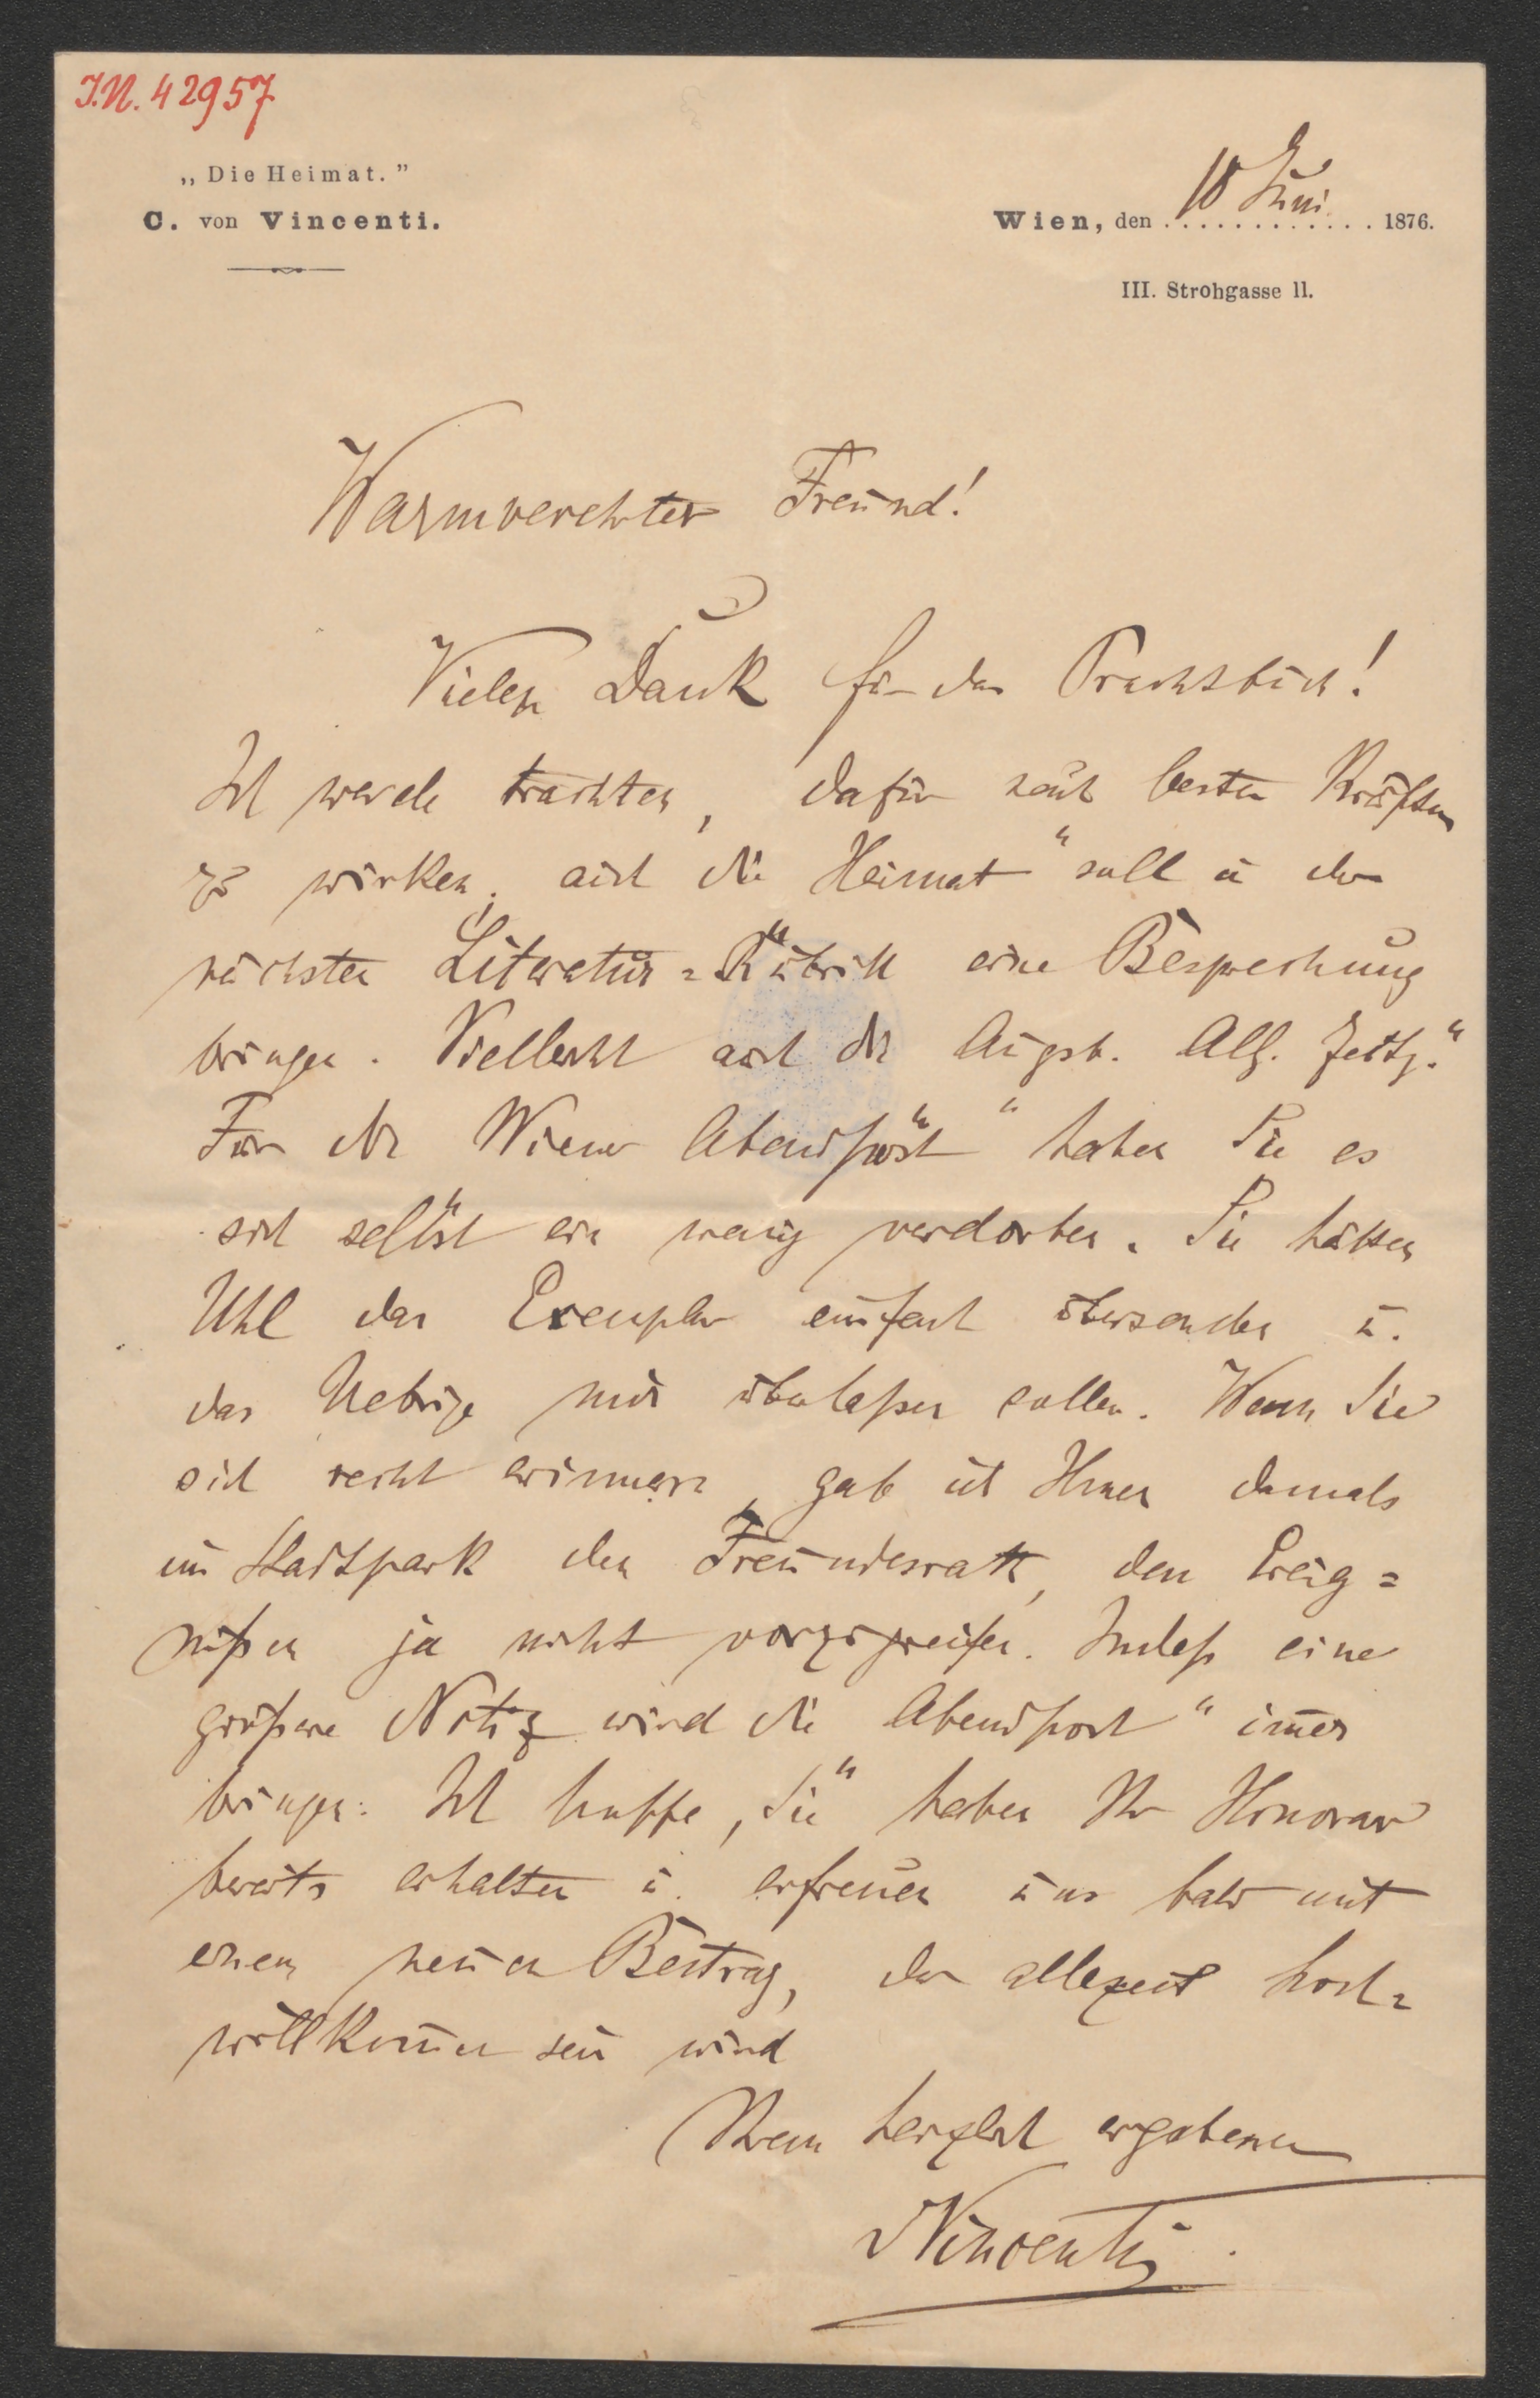 I.N. 42957
„Die Heimat.”
C. von Vincenti.
Wien, den 10 Juni 1876.
III. Strohgasse 11.
Warmverehrter Freund!
Vielen Dank für das Prachtbuch!
Ich werde trachten, dafür nach besten Kräften
zu wirken, auch die Heimat“ soll in der
nächsten Literatur=Rubrik eine Besprechung
bringen. Vielleicht auch die Augsb. Allg. Zeitg.“
Für die Wiener Abendpost“ haben Sie es
sich selbst ein wenig verdorben. Sie hätten
Uhl das Exemplar einfach übersenden u.
das Uebrige mir überlaßen sollen. Wenn Sie
sich recht erinnern, gab ich Ihnen damals
im Stadtpark den Freundesrath, den Ereig=
nißen ja nicht vorzugreifen. Indeß eine
größere Notiz wird die Abendpost“ immer
bringen. Ich hoffe, Sie haben Ihr Honorar
bereits erhalten u. erfreuen uns bald mit
einem neuen Beitrag, der allezeit hoch=
willkommen sein wird
Ihrem herzlich ergebenen
Vincenti.